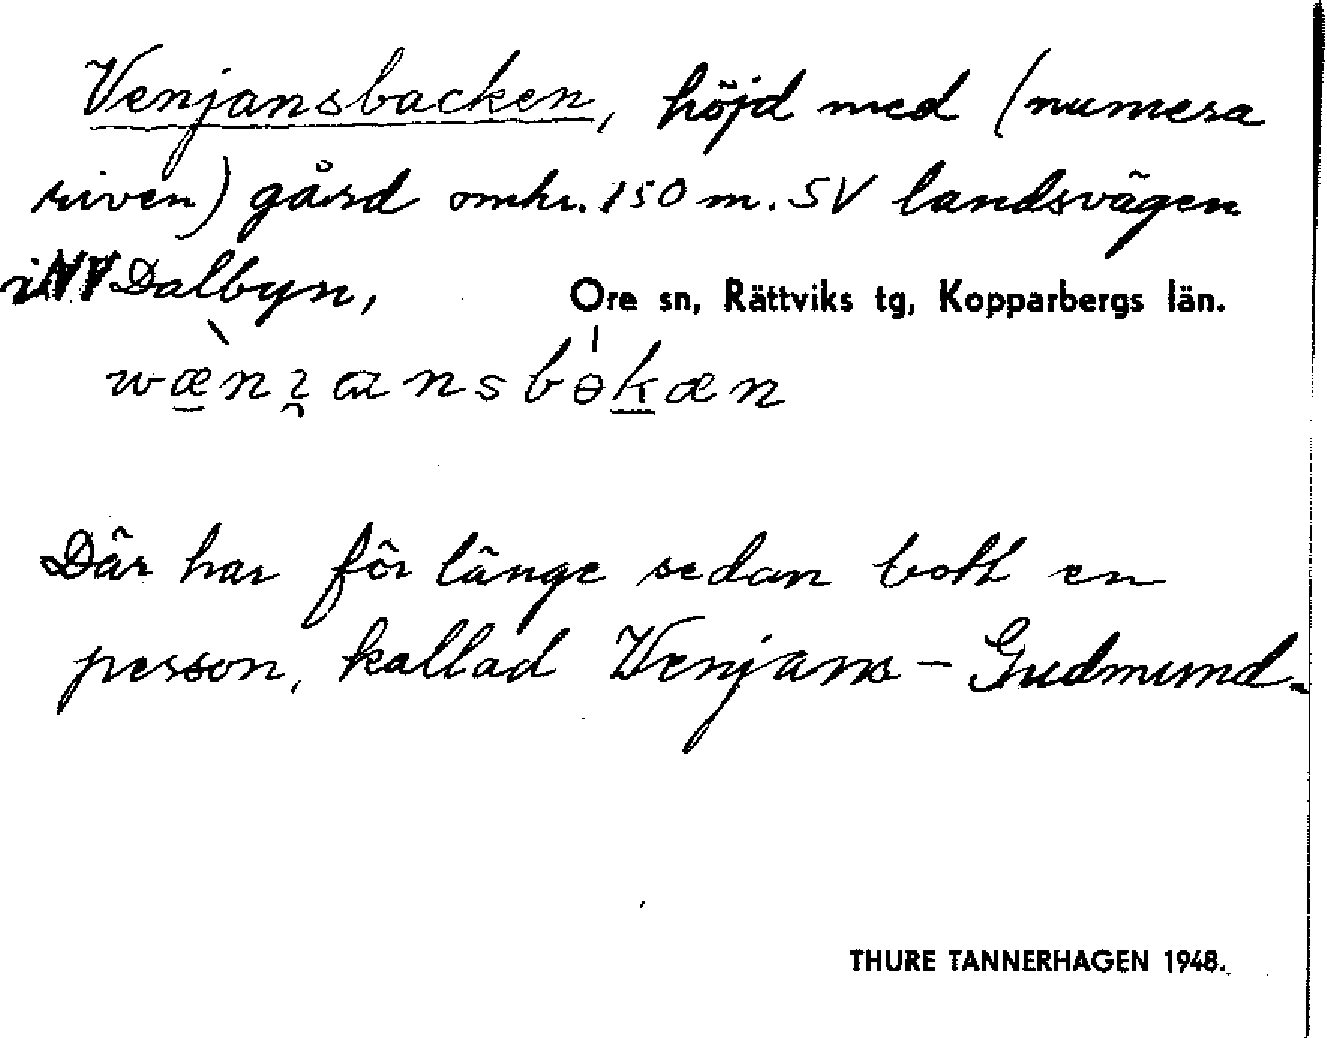 Venjansbacken, höjd med (numera
riven) gård omkr. 150 m. SV landsvägen
i Dalbyn,
Ore sn, Rättviks tg, Kopparbergs län.
Där har för länge sedan bott en
person, kallad Venjans-Gudmund.
THURE TANNERHAGEN 1948.